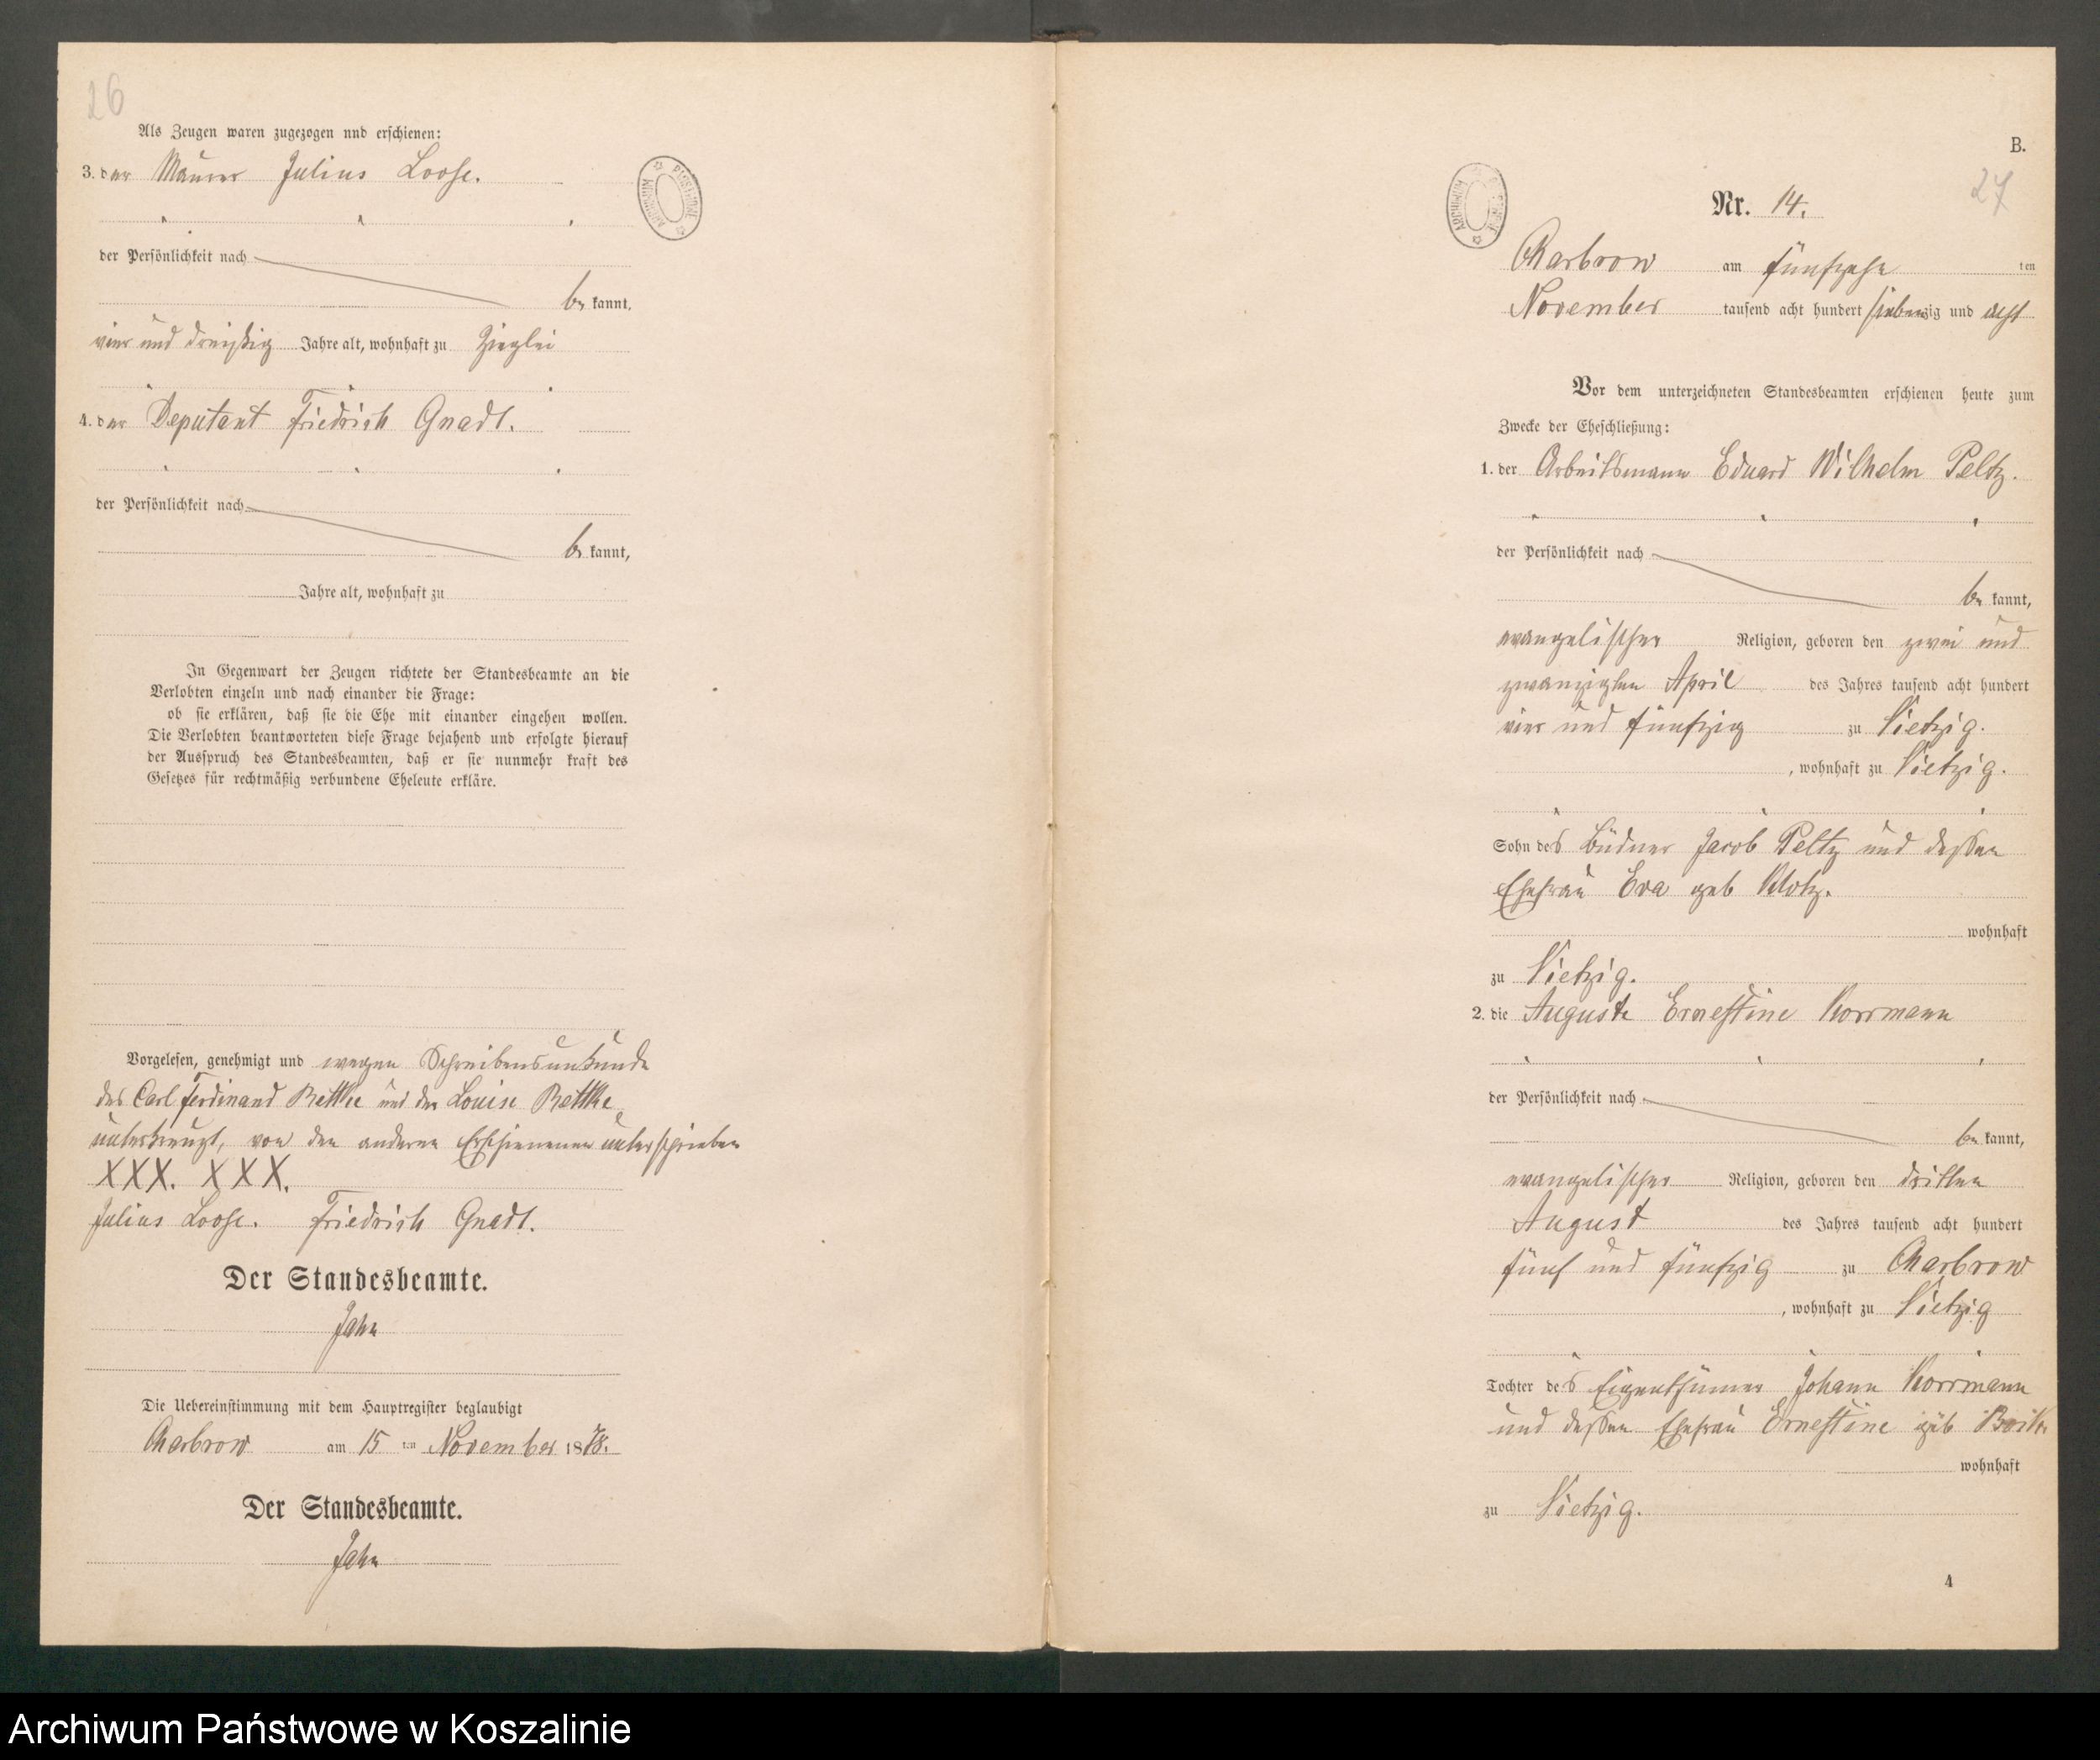 26
Als Zeugen waren zugezogen und erschienen:
3. der Maurer Julius Loose.
der Persönlichkeit nach
be kannt,
vier und dreißig Jahre alt, wohnhaft zu
4. der Deputant Friedrich Gnadt.
der Persönlichkeit nach
be kannt,
Jahre alt, wohnhaft zu
In Gegenwart der Zeugen richtete der Standesbeamte an die
Verlobten einzeln und nach einander die Frage:
ob sie erklären, daß sie die Ehe mit einander eingehen wollen.
Die Verlobten beantworteten diese Frage bejahend und erfolgte hierauf
der Ausspruch des Standesbeamten, daß er sie nunmehr kraft des
Gesetzes für rechtmäßig verbundene Eheleute erkläre.
Vorgelesen, genehmigt und wegen Schreibensunkunde
des Carl Ferdinand und der Louise
unterkreuzt, von den anderen Erschienenen unterschrieben
XXX. XXX.
Julius Loose. Friedrich Gnadt.
Der Standesbeamte.
Jahn
Die Uebereinstimmung mit dem Hauptregister beglaubigt
Charbrow am 15 ten November 1878.
Der Standesbeamte.
Jahn
B.
27
Nr. 14.
Charbrow am fünfzehn ten
November tausend acht hundert siebenzig und acht
Vor dem unterzeichneten Standesbeamten erschienen heute zum
Zwecke der Eheschließung:
1. der Arbeitsmann Eduard Wilhelm Peltz.
der Persönlichkeit nach
be kannt,
evangelischer Religion, geboren den zwei und
zwanzigsten April des Jahres tausend acht hundert
vier und fünfzig zu Vietzig.
, wohnhaft zu Vietzig.
Sohn des Büdner Jacob Peltz und dessen
Ehefrau Eva geb Klotz.
wohnhaft
zu Vietzig.
2. die Auguste Ernestine Korrmann
der Persönlichkeit nach
be kannt,
evangelischer Religion, geboren den dritten
August des Jahres tausend acht hundert
fünf und fünfzig zu Charbrow
, wohnhaft zu Vietzig
Tochter des Eigenthümer Johann Korrmann
und dessen Ehefrau Ernestine geb
wohnhaft
zu Vietzig.
4
ARCHIWUM PAŃSTWOWE
ARCHIWUM PAŃSTWOWE
Archiwum Państwowe w Koszalinie